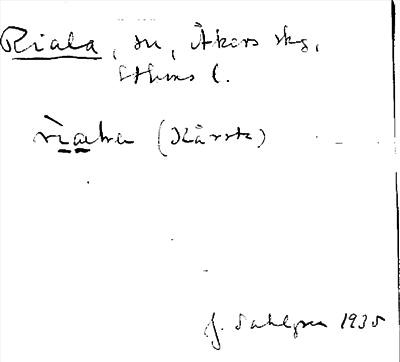 Riala, sn, Åkers skg,
Sthms l.
(Kårsta)
J. Sahlgren 1935